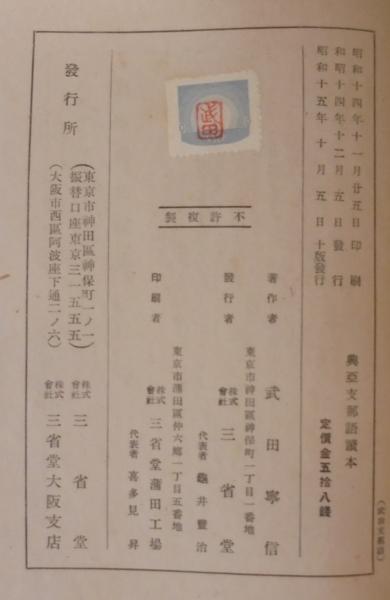 昭和十四年十一月廿五日印刷
昭和十四年十二月五日發行
昭和十五年十月五日十版發行
興亞支那語讀本
定價金五拾八錢
武田
不許複製
東京市神田區神保町一丁目一番地
著作者 武田寧信
發行者 株式會社 三省堂
代表者 龜井豐治
東京市蒲田區仲六鄕一丁目五番地
印刷者 株式會社 三省堂蒲田工場
代表者 喜多見昇
發行所
(東京市神田區神保町一ノ一
振替口座東京三一五五五)
株式會社 三省堂
(大阪市西區阿波座下通二ノ六)
株式會社 三省堂大阪支店